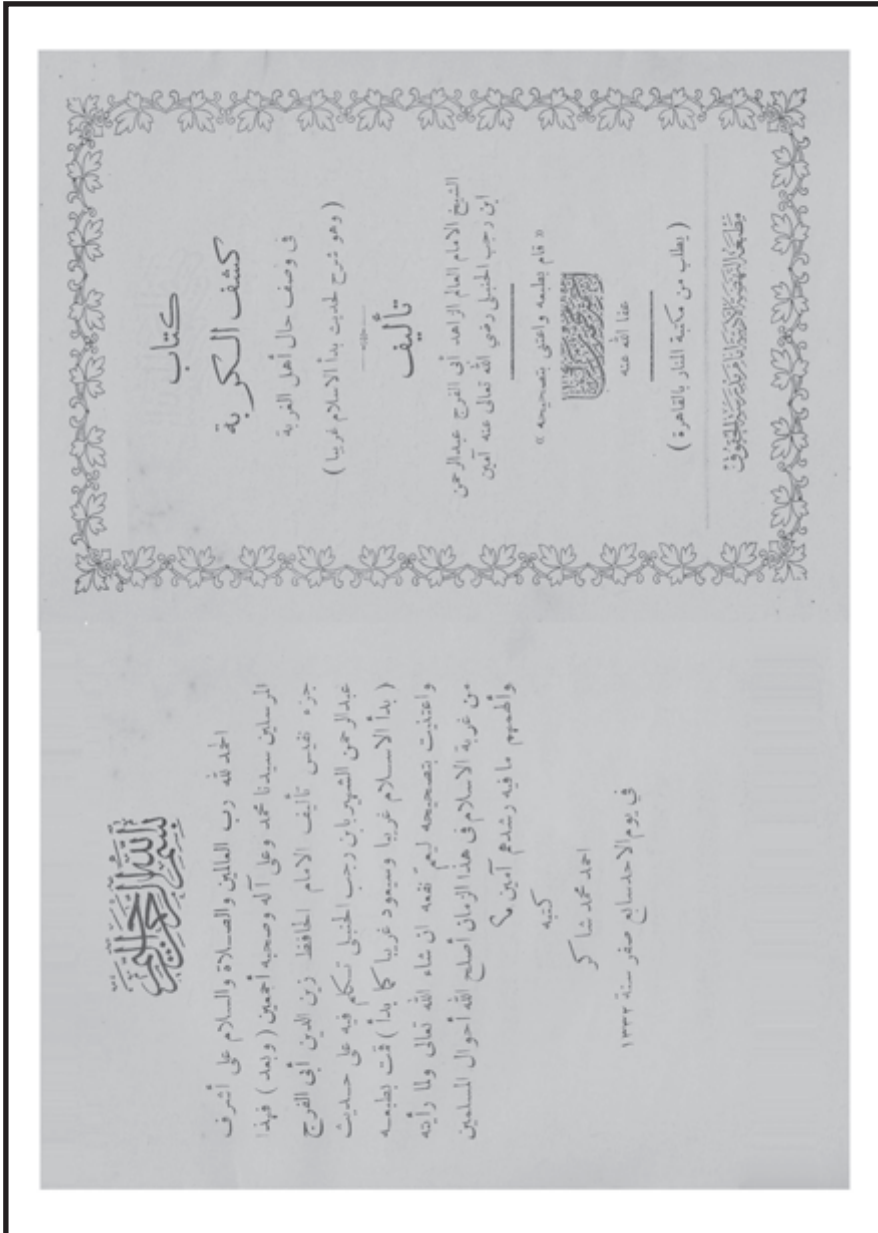 كتاب
كشف الكربة
فى وصف حال أهل الغربة
( وهو شرح لحديث بدأ الاسلام غريبا )
تأليف
الشيخ الامام العالم الزاهد أبى الفرج عبدالرحمن
ابن رجب الحنبلى رضي الله تعالى عنه آمين
« قام بطبعه واعتنى بتصحيحه »
عفا الله عنه
( يطلب من مكتبة المنار بالقاهرة )
بسم الله الرحمن الرحيم
الحمد لله رب العالمين والصلاة والسلام على أشرف
المرسلين سيدنا محمد وعلى آله وصحبه أجمعين ( وبعد ) فهذا
جزء نفيس تأليف الامام الحافظ زين الدين أبى الفرج
عبدالرحمن الشهير بابن رجب الحنبلى تكلم فيه على حديث
( بدأ الاسلام غريبا وسيعود غريبا كما بدأ ) قمت بطبعه
واعتنيت بتصحيحه ليعم نفعه ان شاء الله تعالى ولما رأيته
من غربة الاسلام فى هذا الزمان أصلح الله أحوال المسلمين
وألهمهم ما فيه رشدهم آمين
كتبه
احمد محمد شاكر
في يوم الاحد سابع صفر سنة ١٣٣٢